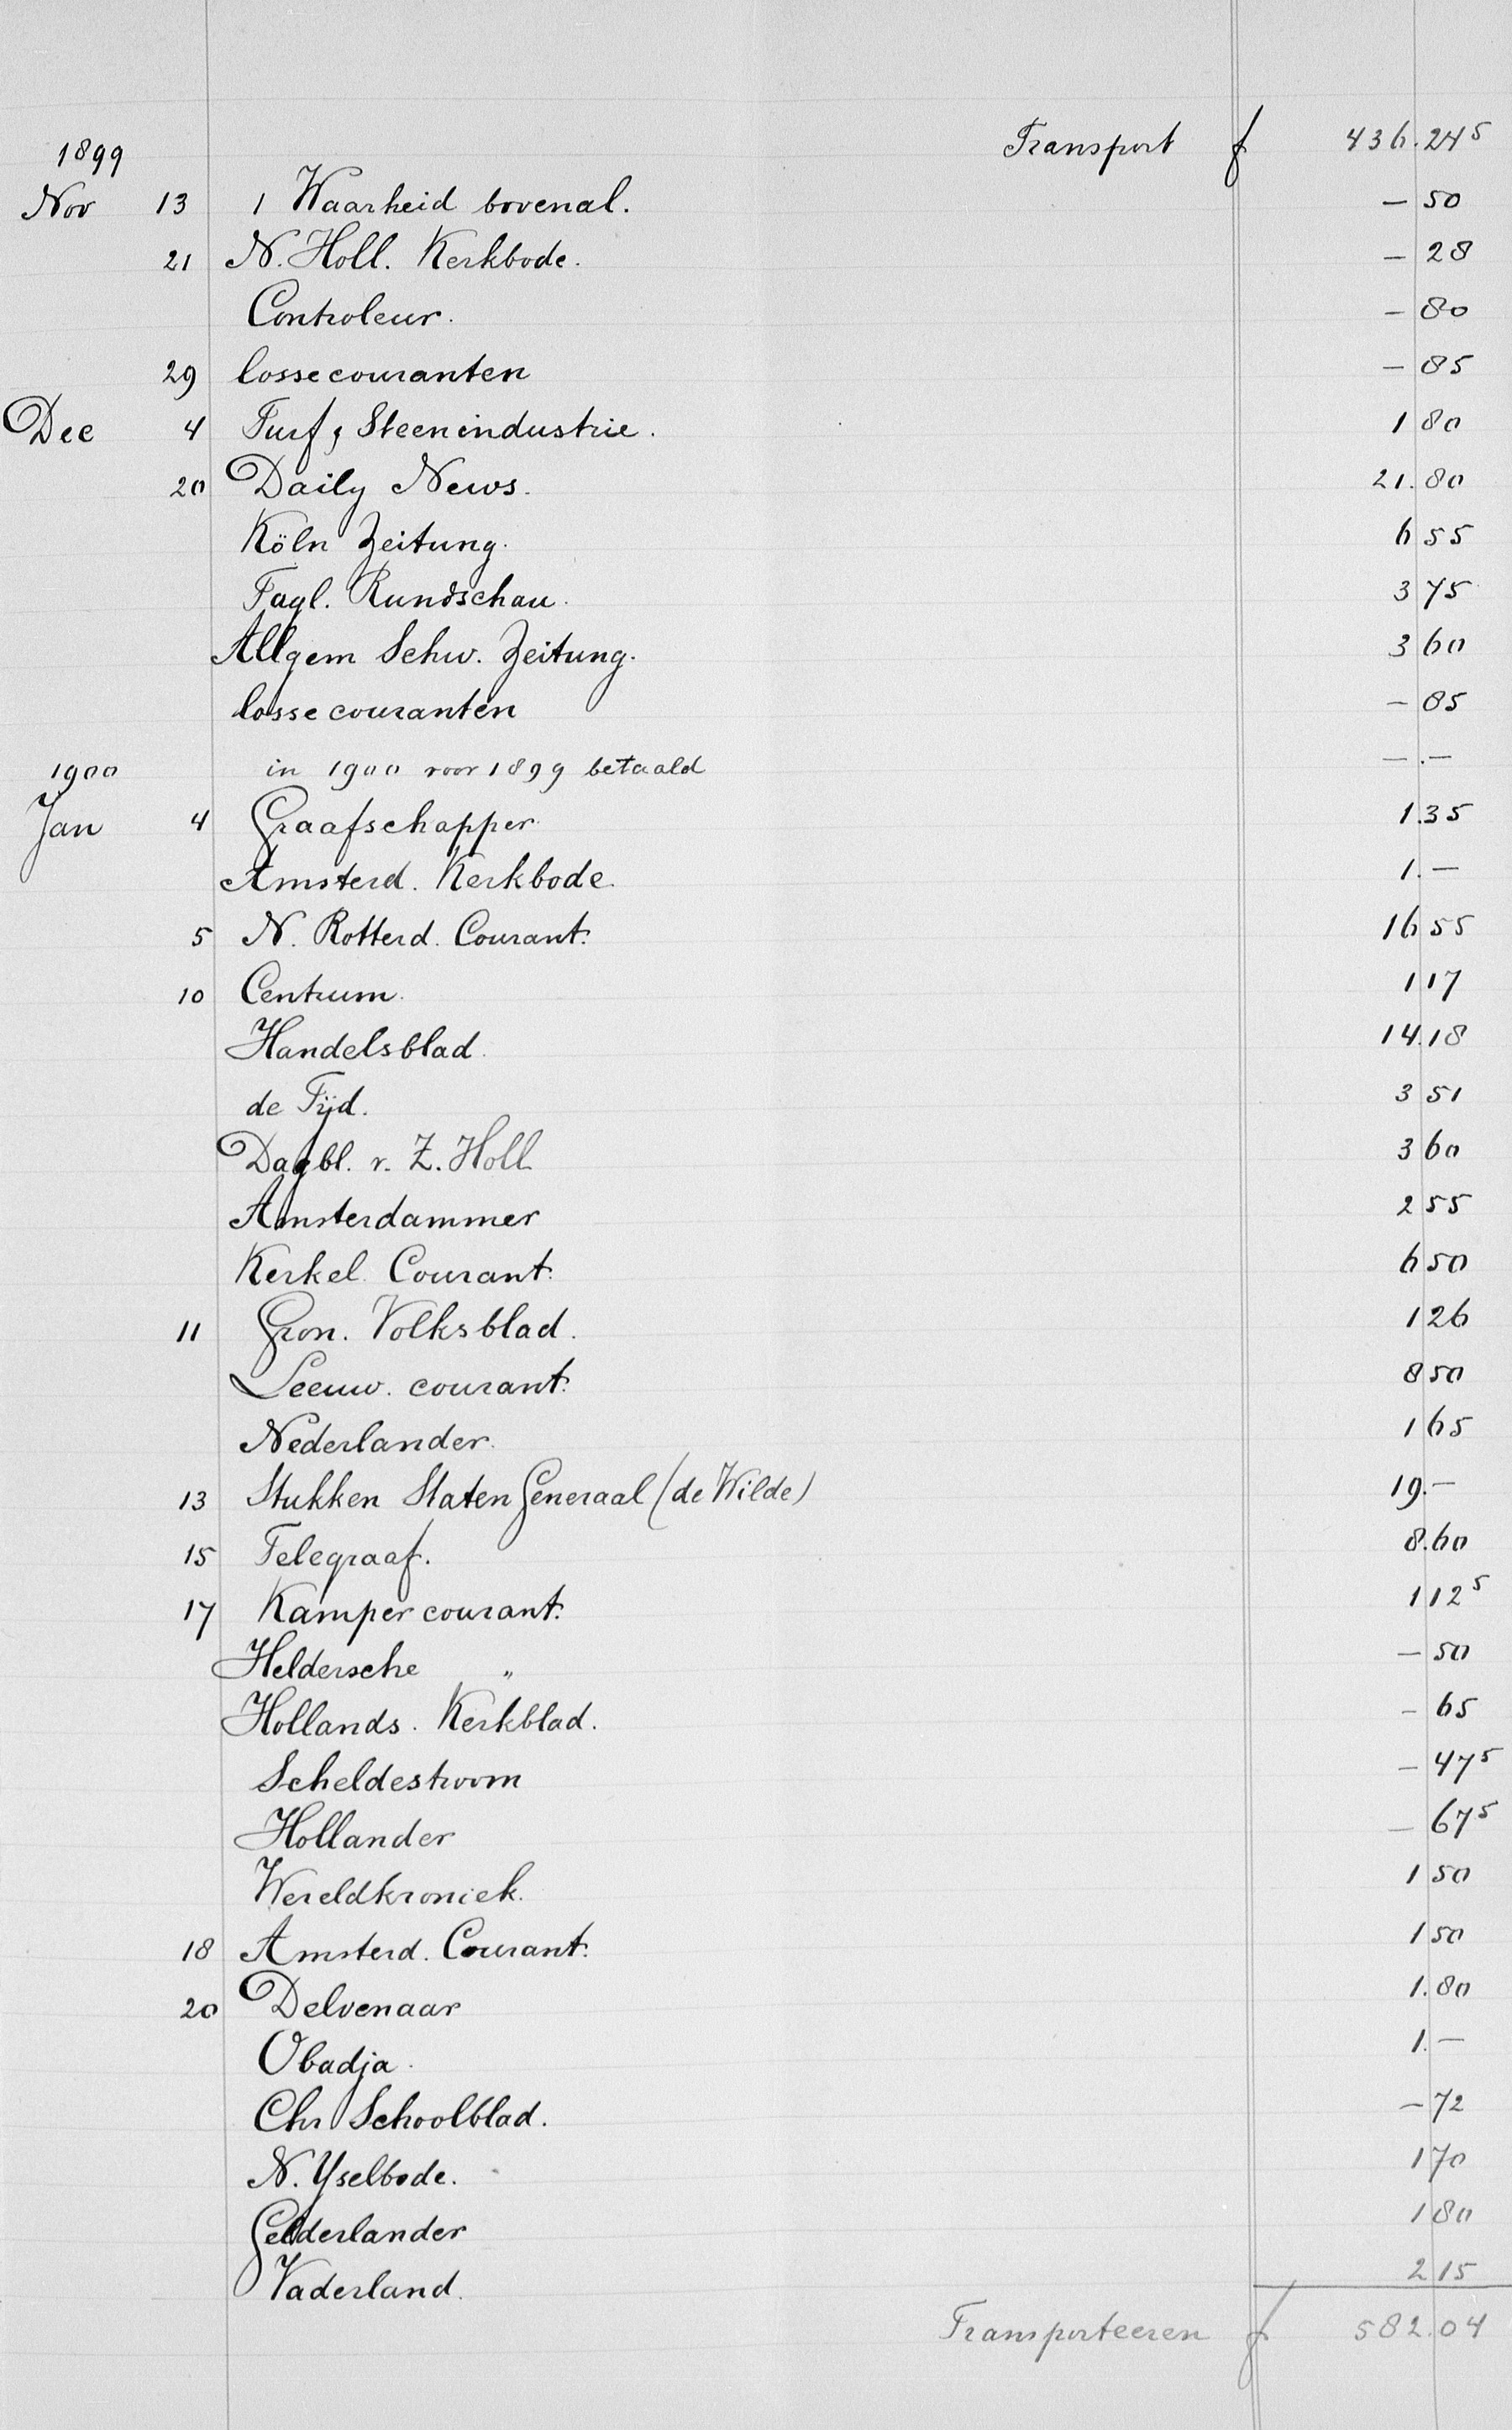 Transport f 436.24⁵
1899
Nov 13 1 Waarheid bovenal. — 50
21 N. Holl. Kerkbode. — 28
Controleur. — 80
29 losse couranten — 85
Dec 4 Turf & Steenindustrie. 1 80
20 Daily News. 21.80
Köln Zeitung. 6 55
Tagl. Rundschau. 3 75
Allgem Schw. Zeitung. 3 60
losse couranten — 85
1900 in 1900 voor 1899 betaald — . —
Jan 4 Graafschapper 1.35
Amsterd. Kerkbode. 1. —
5 N. Rotterd. Courant. 16 55
10 Centrum. 1 17
Handelsblad. 14.18
de Tijd. 3 51
Dagbl. v. Z. Holl 3 60
Amsterdammer 2 55
Kerkel. Courant. 6 50
11 Gron. Volksblad. 1 26
Leeuw. courant. 8 50
Nederlander. 1 65
13 Stukken Staten Generaal (de Wilde) 19. —
15 Telegraaf. 8.60
17 Kamper courant. 1 12⁵
Heldersche " — 50
Hollands. Kerkblad. — 65
Scheldestroom — 47⁵
Hollander — 67⁵
Wereldkroniek. 1 50
18 Amsterd. Courant. 1 50
20 Delvenaar 1.80
Obadja. 1. —
Chr Schoolblad. — 72
N. Yselbode. 1 70
Gelderlander 1 80
Vaderland. 2 15
Transporteeren f 582.04